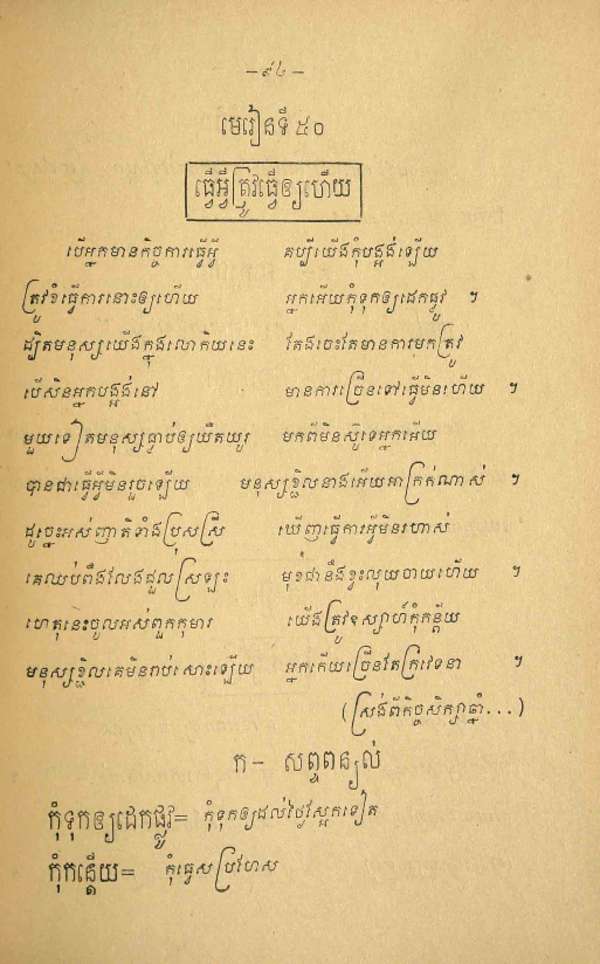 –៩៤–
មេរៀនទី ៥០
ធ្វើអ្វីត្រូវធ្វើឲ្យហើយ
បើអ្នកមានកិច្ចការធ្វើអ្វី គប្បីយើងកុំបង្អង់ឡើយ
ត្រូវខំធ្វើការនោះឲ្យហើយ អ្នកអើយកុំទុកឲ្យដេកផ្លូវ ។
ដ្បិតមនុស្សយើងក្នុងលោកិយនេះ តែងចេះតែមានការមកត្រូវ
បើសិនអ្នកបង្អង់នៅ មានការច្រើនទៅធ្វើមិនហើយ ។
មួយទៀតមនុស្សធ្លាប់ឲ្យយឺតយូរ មកពីមិនស៊ូទេអ្នកអើយ
បានជាធ្វើអ្វីមិនរួចឡើយ មនុស្សខ្ជិលនាងអើយអាក្រក់ណាស់ ។
ដូច្នេះអស់ញាតិទាំងប្រុសស្រី ឃើញធ្វើការអ្វីមិនរហាស់
គេឈប់ពឹងលែងជួលស្រឡះ មុខជានឹងខ្វះលុយចាយហើយ ។
ហេតុនេះចូលអស់ពួកកុមារ យើងត្រូវឧស្សាហ៍កុំកន្តើយ
មនុស្សខ្ជិលគេមិនរាប់សោះឡើយ អ្នកកើយច្រើនតែក្រវេទនា ។
(ស្រង់ពីកិច្ចសិក្សាឆ្នាំ...)
ក – សព្ទពន្យល់
កុំទុកឲ្យដេកផ្លូវ= កុំទុកឲ្យដល់ថ្ងៃស្អែកទៀត
កុំកន្តើយ= កុំធ្វេសប្រហែស